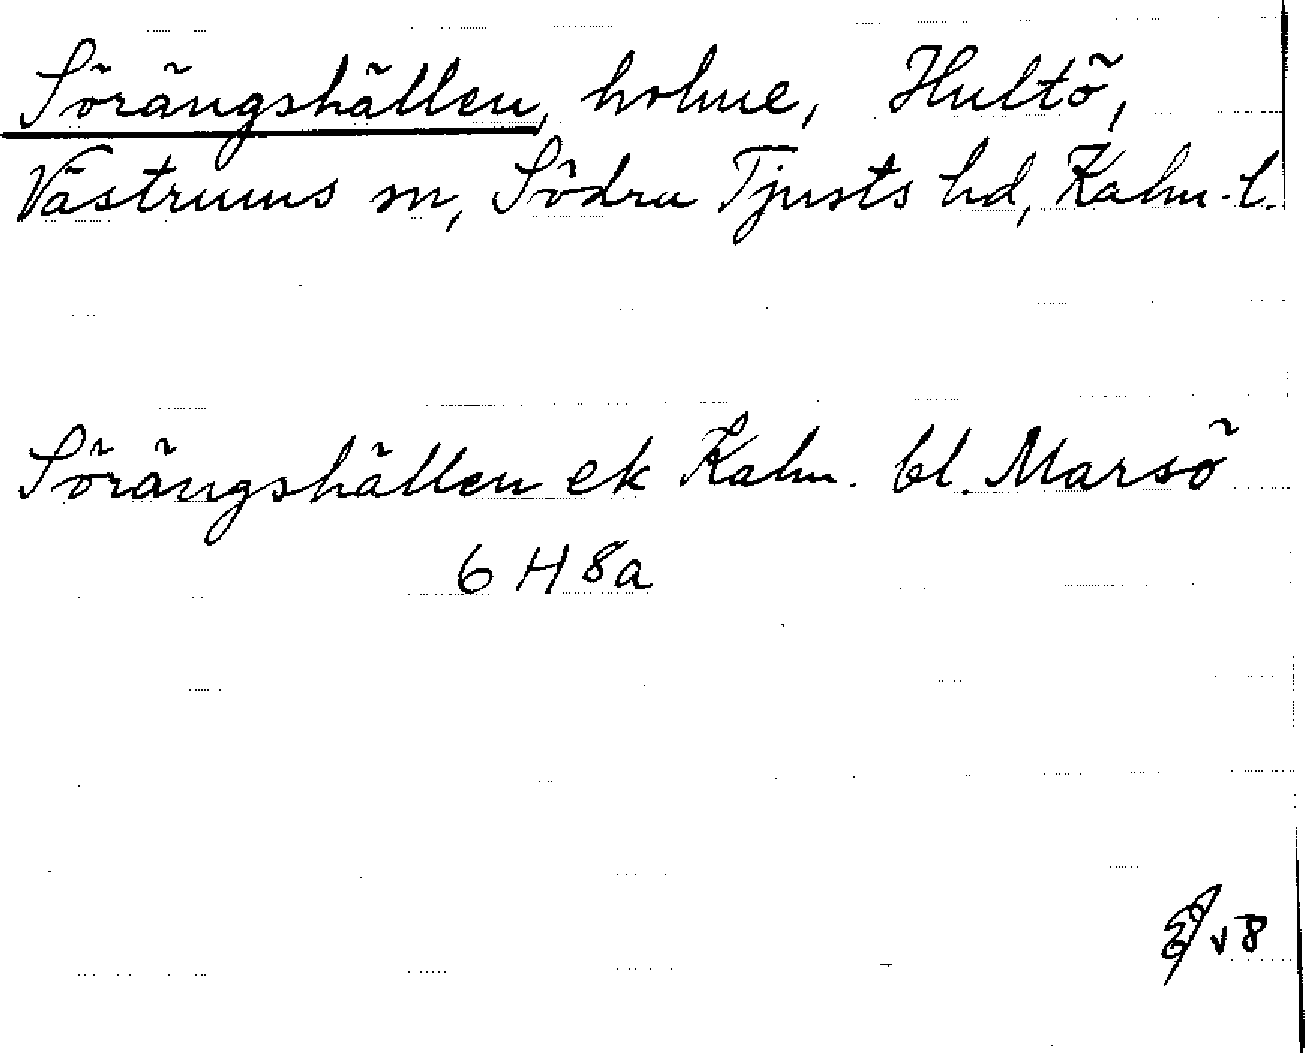 Sörängshällen, holme, Hultö,
Västrums sn, Södra Tjusts hd, Kalm. l.
Sörängshällen ek Kalm. bl. Marsö
6 H 8a